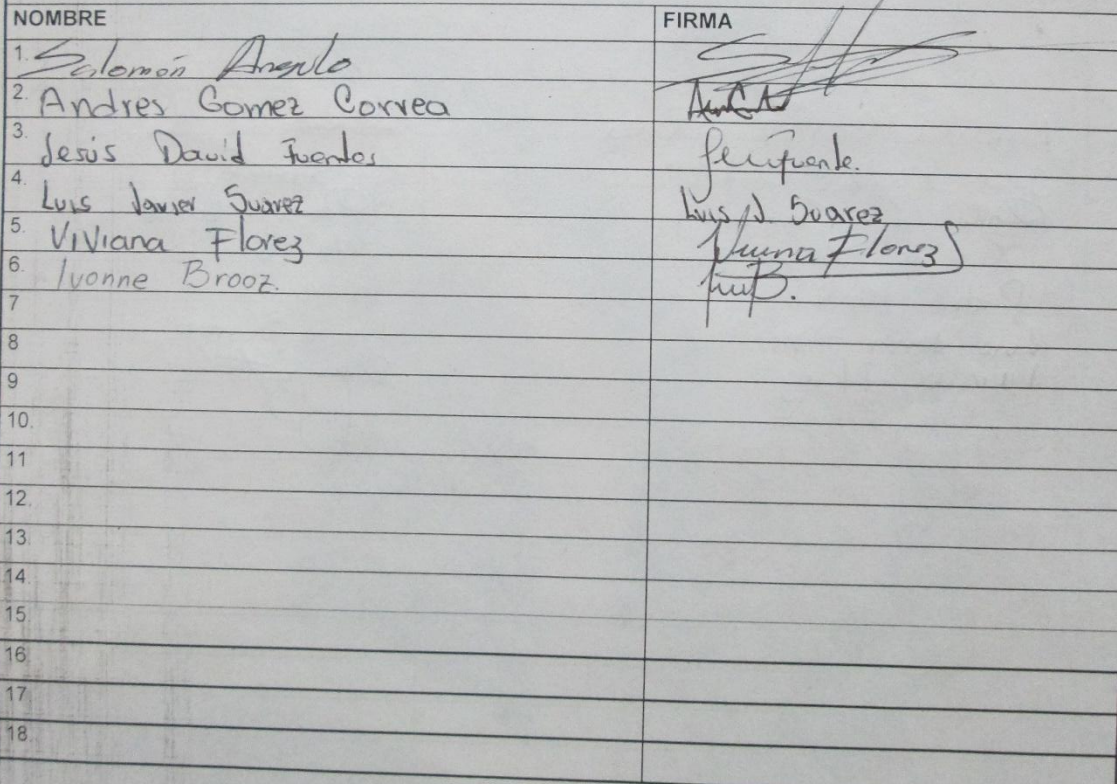 NOMBRE FIRMA
1. Salomón Angulo
2. Andres Gomez Correa
3. Jesús David Fuentes
4. Luis Javier Suarez Luis J. Suarez
5. Viviana Florez Viviana Florez
6. Ivonne Brooz.
7
8
9
10.
11
12.
13
14.
15
16
17
18.